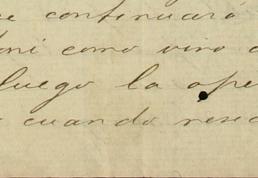 se continuará
oni como vino a
luego la ope
cuando resi